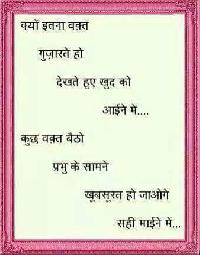 क्यों इतना वक़्त
गुज़ारते हो
देखते हुए खुद को
आईने में....
कुछ वक़्त बैठो
प्रभु के सामने
खूबसूरत हो जाओगे
सही माईने में...